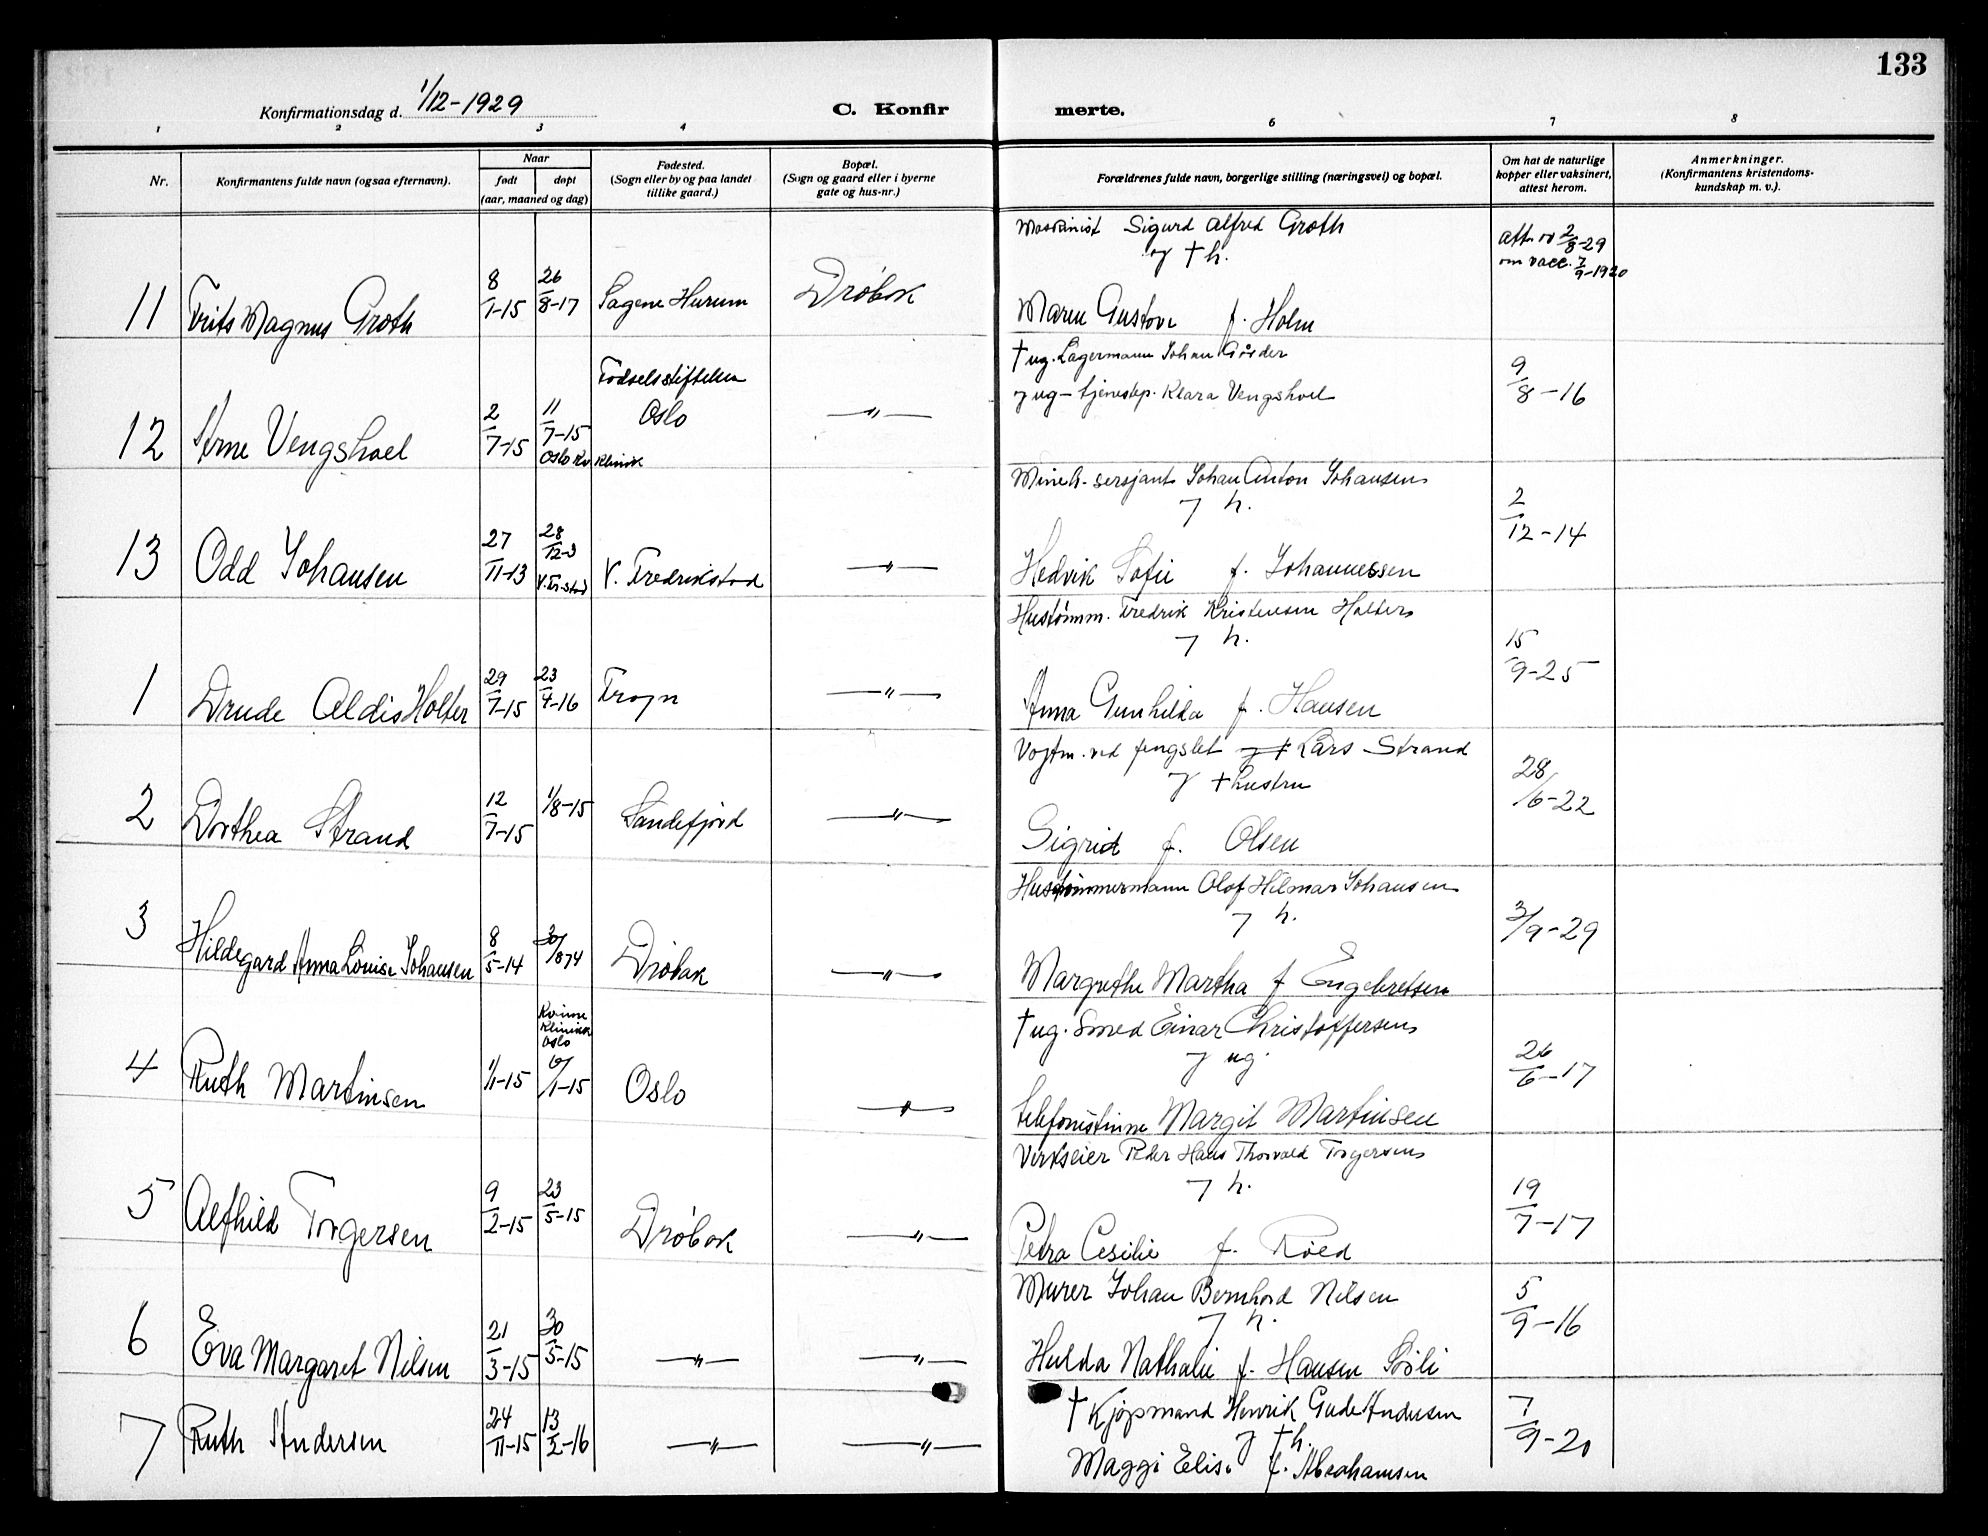 133
Konfirmationsdag d. 1/12-1929
C. Konfir
merte.
1 2 3 4 6 7 8
Nr.
Konfirmantens fulde navn (ogsaa efternavn).
Naar
født
døpt
(aar, maaned og dag)
Fødested.
(Sogn eller by og paa landet
tillike gaard.)
Bopæl.
(Sogn og gaard eller i byerne
gate og hus-nr.)
Forældrenes fulde navn, borgerlige stilling (næringsvei) og bopæl.
Om hat de naturlige
kopper eller vaksinert,
attest herom.
Anmerkninger.
(Konfirmantens kristendoms-
kundskap m. v.).
11 Frits Magnus Groth 8/1-15 26/8-17 Sagene Hurum Drøbak
Maskinist Sigurd Alfred Groth
og † h.
Maren Gustava f. Holm
2/8-29
om vacc. 7/9-1920
12 Arne Vengshoel 2/7-15 11/7-15
Oslo Kv. Klinik
Fødselsstiftelsen
Oslo
—"—
† ug. Lagermann Johan Gårder
og ug- tjenestep. Klara Vengshoel
9/8-16
13 Odd Johansen 27/11-13 28/12-13
V. Fr.stad
V. Fredrikstad —"—
Mineh. sersjant Johan Anton Johansen
og h.
Hedvik Sofie f. Johannessen
2/12-14
1 Drude Aldis Holter 29/7-15 23/4-16 Frogn —"—
Hustømm. Fredrik Kristensen Holter
og h.
Anna Gunhilda f. Hansen
15/9-25
2 Dorthea Strand 12/7-15 1/8-15 Sandefjord —"—
Vogtm. ved fengslet og † Lars Strand
og † hustru
Sigrid f. Olsen
28/6-22
3 Hildegard Anna Lovise Johansen 8/5-14 30/8 14 Drøbak —"—
Hustømmermann Olof Hilmar Johansen
og h.
Margrethe Martha f Engebretsen
3/9-29
4 Ruth Martinsen 1/1-15
Kvinne
Klinikk
Oslo
6/1-15
Oslo —"—
† ug. Smed Einar Christoffersen
og ug.
telefonistinne Margit Martinsen
26/6-17
5 Alfhild Torgersen 9/2-15 23/5-15 Drøbak —"—
Verkseier Peder Hans Thorvald Torgersen
og h.
Petra Cesilie f. Røed
19/7-17
6 Eva Margaret Nilsen 21/3-15 30/5-15 —"— —"—
Murer Johan Bernhard Nilsen
og h.
Hulda Nathalie f. Hansen Søli
5/9-16
7 Ruth Andersen 24/11-15 13/2-16 —"— —"—
† Kjøpmand Henrik Gude Andersen
og † h.
Maggi Elise f. Abrahamsen
7/9-20